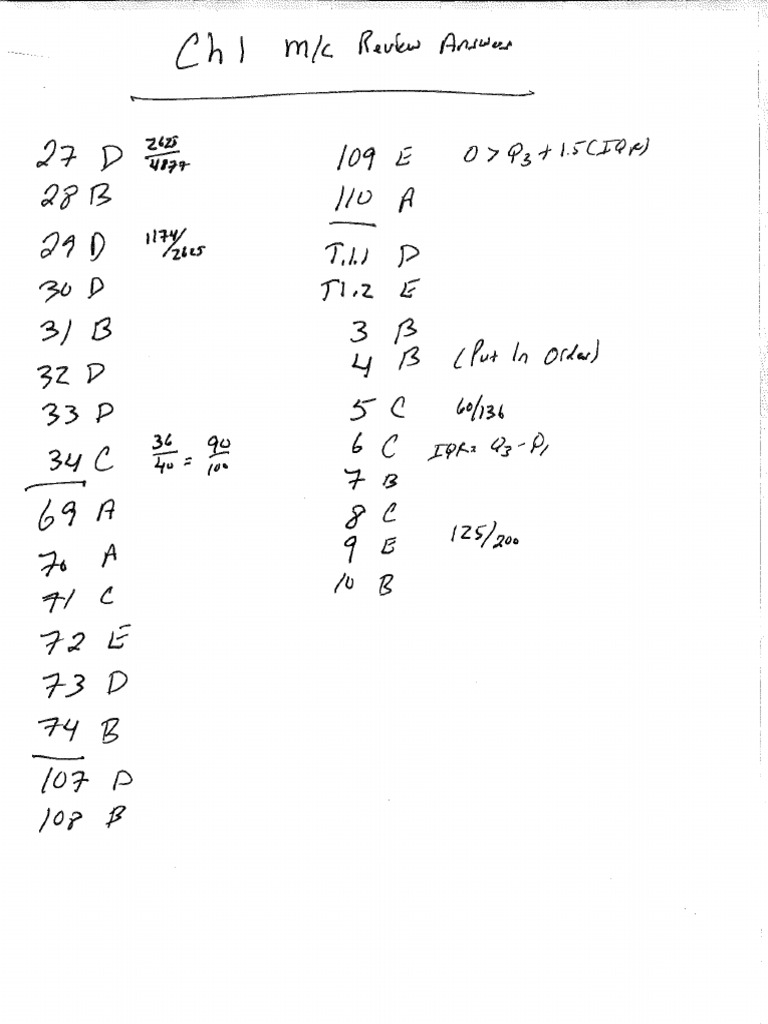 Ch 1 M/C Review Answers
27 D 2625/4877
28 B
29 D 1174/2625
30 D
31 B
32 D
33 D
34 C 36/40 = 90/100
69 A
70 A
71 C
72 E
73 D
74 B
107 D
108 B
109 E O > Q3 + 1.5(IQR)
110 A
T.1.1 D
T1.2 E
3 B
4 B (Put In Order)
5 C 60/136
6 C IQR = Q3 - Q1
7 B
8 C
9 E 125/200
10 B